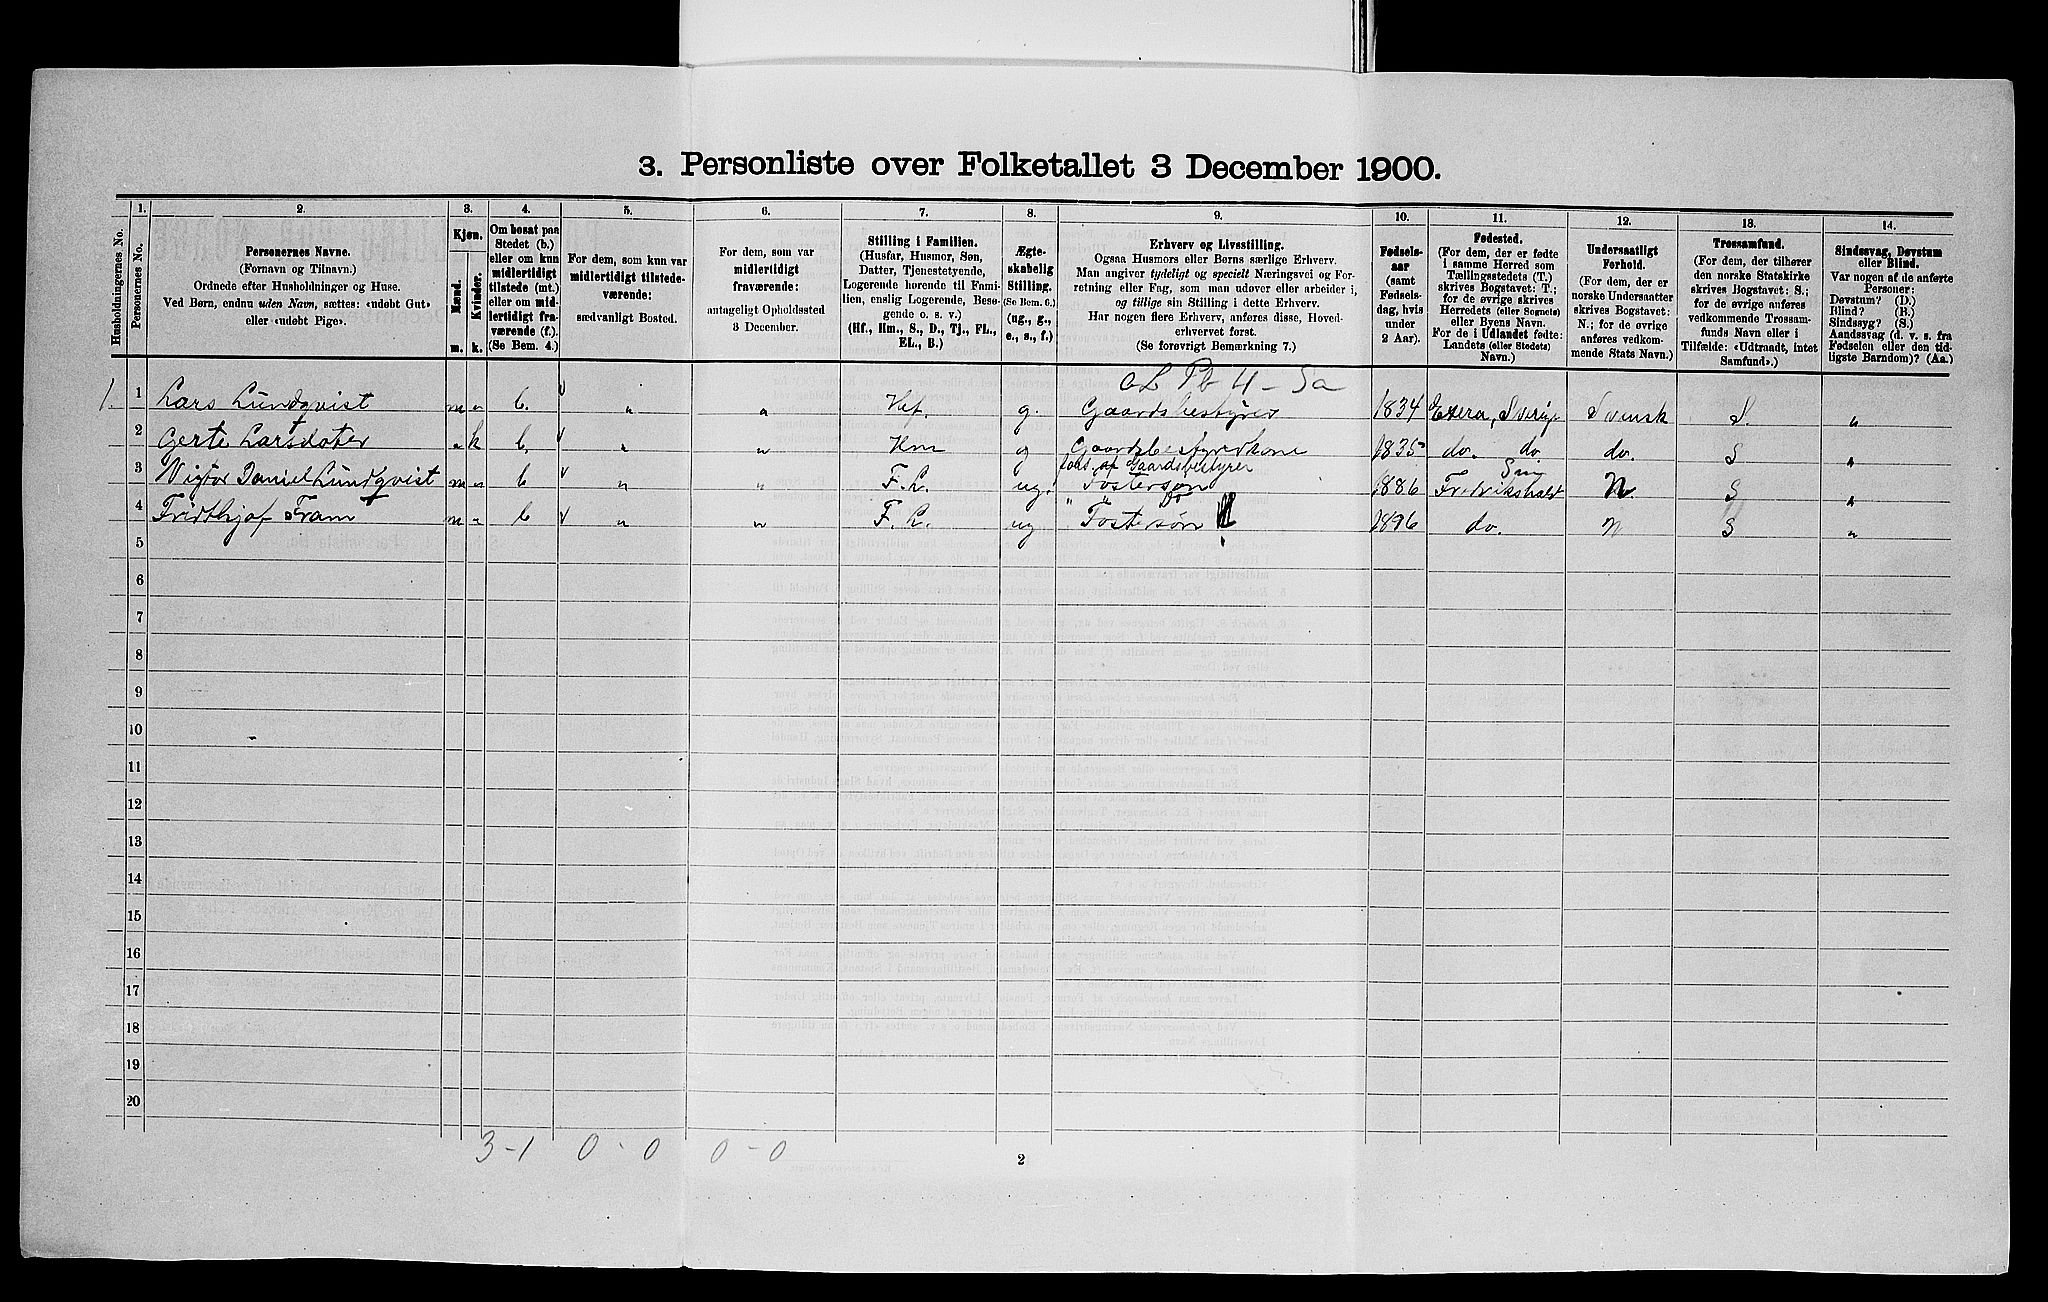 3. Personliste over Folketallet 3 December 1900.
1. 2. 3. 4. 5. 6. 7. 8. 9. 10. 11. 12. 13. 14.
Husholdningernes No.
Personernes No.
Personernes Navne.
(Fornavn og Tilnavn.)
Ordnede efter Husholdninger og Huse.
Ved Børn, endnu uden Navn, sættes: «udøbt Gut»
eller «udøbt Pige».
Kjøn.
Mænd.
Kvinder.
m. k.
Om bosat paa
Stedet (b.)
eller om kun
midlertidigt
tilstede (mt.)
eller om mid-
lertidigt fra-
værende (f.)
(Se Bem. 4.)
For dem, som kun var
midlertidigt tilstede-
værende:
sædvanligt Bosted.
For dem, som var
midlertidigt
fraværende:
antageligt Opholdssted
3 December.
Stilling i Familien.
(Husfar, Husmor, Søn,
Datter, Tjenestetyende,
Logerende hørende til Fami-
lien, enslig Logerende, Besø-
gende o. s. v.)
(Hf., Hm., S., D., Tj., FL.,
EL., B.)
Ægte-
skabelig
Stilling.
(Se Bem. 6.)
(ug., g.,
e., s., f.)
Erhverv og Livsstilling.
Ogsaa Husmors eller Børns særlige Erhverv.
Man angiver tydeligt og specielt Næringsvei og For-
retning eller Fag, som man udøver eller arbeider i,
og tillige sin Stilling i dette Erhverv.
Har nogen flere Erhverv, anføres disse, Hoved-
erhvervet først.
(Se forøvrigt Bemærkning 7.)
Fødsels-
aar
(samt
Fødsels-
dag, hvis
under
2 Aar).
Fødested.
(For dem, der er fødte
i samme Herred som
Tællingsstedets (T.)
skrives Bogstavet: T.;
for de øvrige skrives
Herredets (eller Sognets)
eller Byens Navn.
For de i Udlandet fødte:
Landets (eller Stedets)
Navn.)
Undersaatligt
Forhold.
(For dem, der er
norske Undersaatter
skrives Bogstavet:
N.; for de øvrige
anføres vedkom-
mende Stats Navn.)
Trossamfund.
(For dem, der tilhører
den norske Statskirke
skrives Bogstavet: S.;
for de øvrige anføres
vedkommende Trossam-
funds Navn eller i
Tilfælde: «Udtraadt, intet
Samfund».)
Sindssvag, Døvstum
eller Blind.
Var nogen af de anførte
Personer:
Døvstum? (D.)
Blind? (B.)
Sindssyg? (S.)
Aandssvag (d. v. s. fra
Fødselen eller den tid-
ligste Barndom)? (Aa.)
1. 1 Lars Lundqvist m „ b. „ „ Hf. g. Gaardsbestyrer 1834 Svensk S. „
2 Gerte Larsdater „ k b „ „ Hm g Gaardsbestyrerkone 1835 do. do do. S „
3 Vigtor Daniel Lundqvist m „ b „ „ F. L. ug. Fostersøn 1886 Fredrikshald N. S „
4 Fridthjof Fram m „ b „ „ F. L. ug „ Fostersøn 1896 do. N S „
5
6
7
8
9
10
11
12
13
14
15
16
17
18
19
20
3-1 0-0 0-0
2